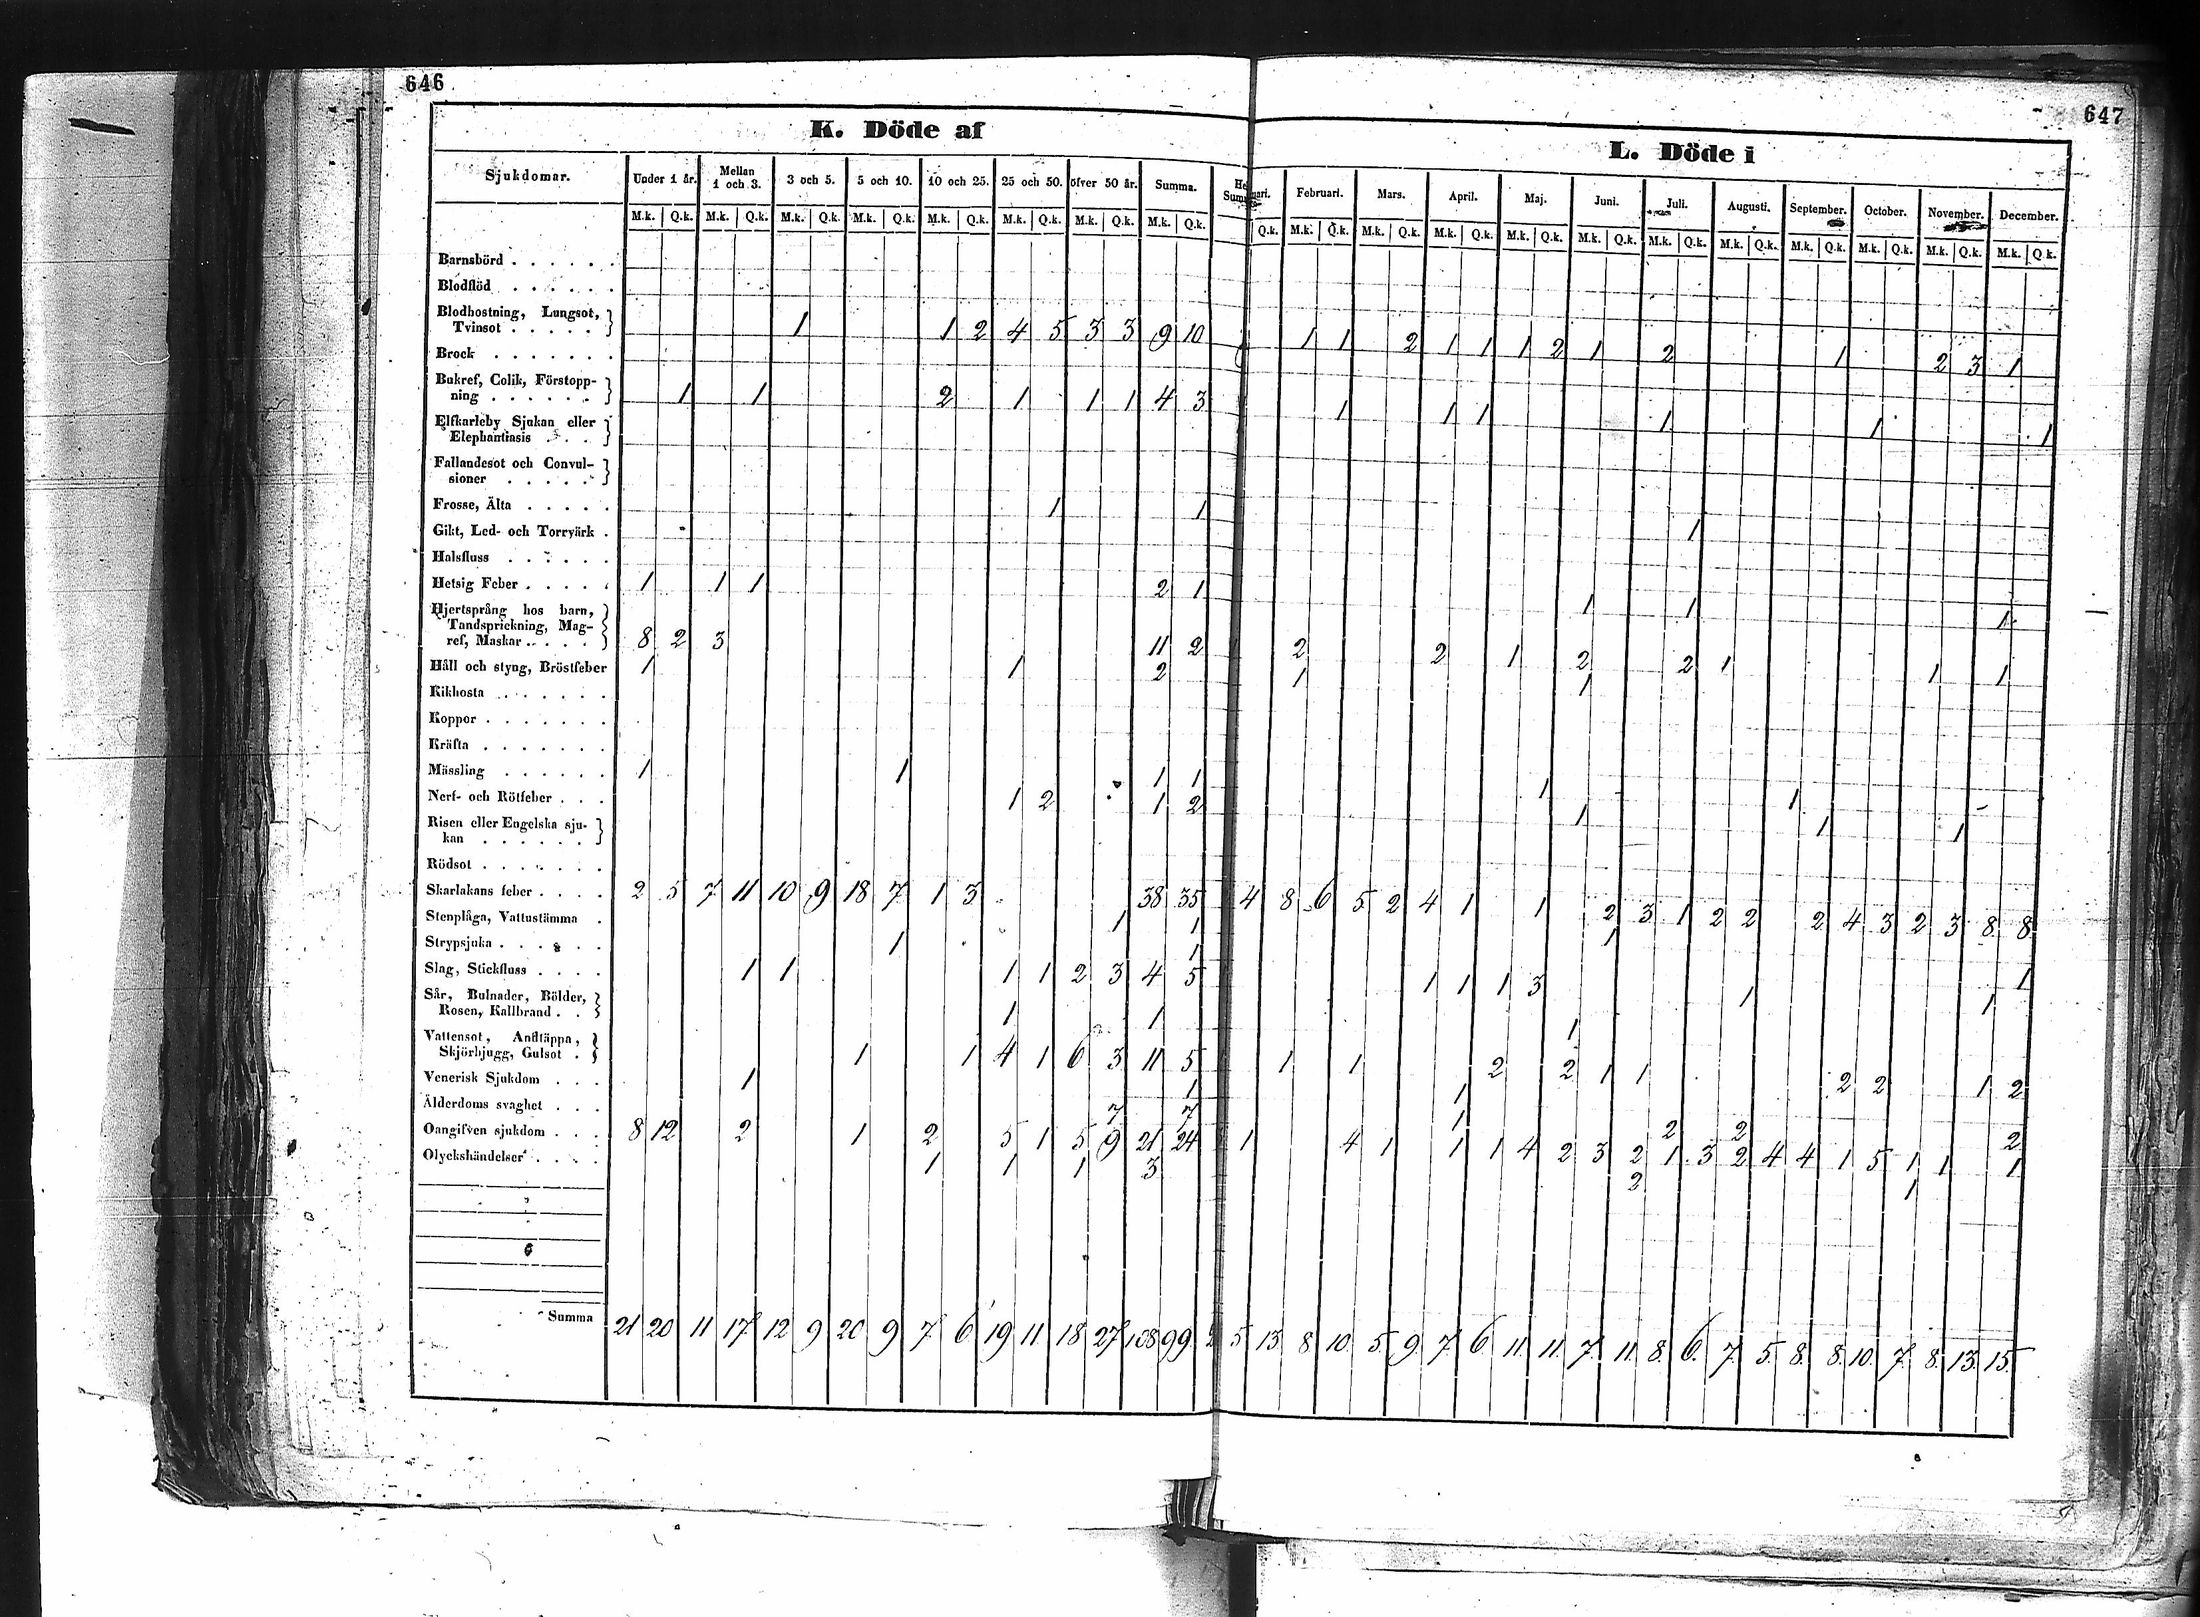 646
647
K. Döde af
L. Döde i
Sjukdomar. Under 1 år. Mellan 1 och 3. 3 och 5. 5 och 10. 10 och 25. 25 och 50. öfver 50 år. Summa.
Februari. Mars. April. Maj. Juni. Juli. Augusti. September. October. November. December.
M.k. Q.k. M.k. Q.k. M.k. Q.k. M.k. Q.k. M.k. Q.k. M.k. Q.k. M.k. Q.k. M.k. Q.k.
Q.k. M.k. Q.k. M.k. Q.k. M.k. Q.k. M.k. Q.k. M.k. Q.k. M.k. Q.k. M.k. Q.k. M.k. Q.k. M.k. Q.k. M.k. Q.k. M.k. Q.k.
Barnsbörd . . . . . .
Blodflöd . . . . . .
Blodhostning, Lungsot,
Tvinsot . . . . . 1 1 2 4 5 3 3 9 10 1 1 2 1 1 1 2 1 2 1 2 3 1
Brock . . . . . . .
Bukref, Colik, Förstopp-
ning . . . . . . 1 1 2 1 1 1 4 3 1 1 1 1 1 1
Elfkarleby Sjukan eller
Elephantiasis . . .
Fallandesot och Convul-
sioner . . . . .
Frosse, Älta . . . . . 1 1 1
Gikt, Led- och Torrvärk .
Halsfluss . . . . . .
Hetsig Feber . . . . . 1 1 1 2 1 1 1 1
Hjertsprång hos barn,
Tandsprickning, Mag-
ref, Maskar . . . . . 8 2 3 11 2 2 2 1 2 2 1 1 1
Håll och styng, Bröstfeber 1 1 2 1 1
Kikhosta . . . . . . .
Koppor . . . . . . .
Kräfta . . . . . . .
Mässling . . . . . . 1 1 1 1 1 1
Nerf- och Rötfeber . . . 1 2 1 2 1 1 1
Risen eller Engelska sju-
kan . . . . . .
Rödsot . . . . . . .
Skarlakans feber . . . . 2 5 7 11 10 9 18 7 1 3 38 35 4 8 6 5 2 4 1 1 2 3 1 2 2 2 4 3 2 3 8 8
Stenplåga, Vattustämma . 1 1 1
Strypsjuka . . . . . . 1 1 1
Slag, Stickfluss . . . . 1 1 1 1 2 3 4 5 1 1 1 3 1 1
Sår, Bulnader, Bölder,
Rosen, Kallbrand . . 1 1 1
Vattensot, Andtäppa,
Skjörbjugg, Gulsot . 1 1 4 1 6 3 11 5 1 1 2 2 1 1 2 2 1 2
Venerisk Sjukdom . . . 1 1 1
Ålderdoms svaghet . . . 7 7 1 2 2 2
Oangifven sjukdom . . . 8 12 2 1 2 5 1 5 9 21 24 1 4 1 1 1 4 2 3 2 1 3 2 4 4 1 5 1 1 1
Olyckshändelser . . . . 1 1 1 3 2 1
Summa 21 20 11 17 12 9 20 9 7 6 19 11 18 27 108 99 5 13 8 10 5 9 7 6 11 11 7 11 8 6 7 5 8 8 10 7 8 13 15